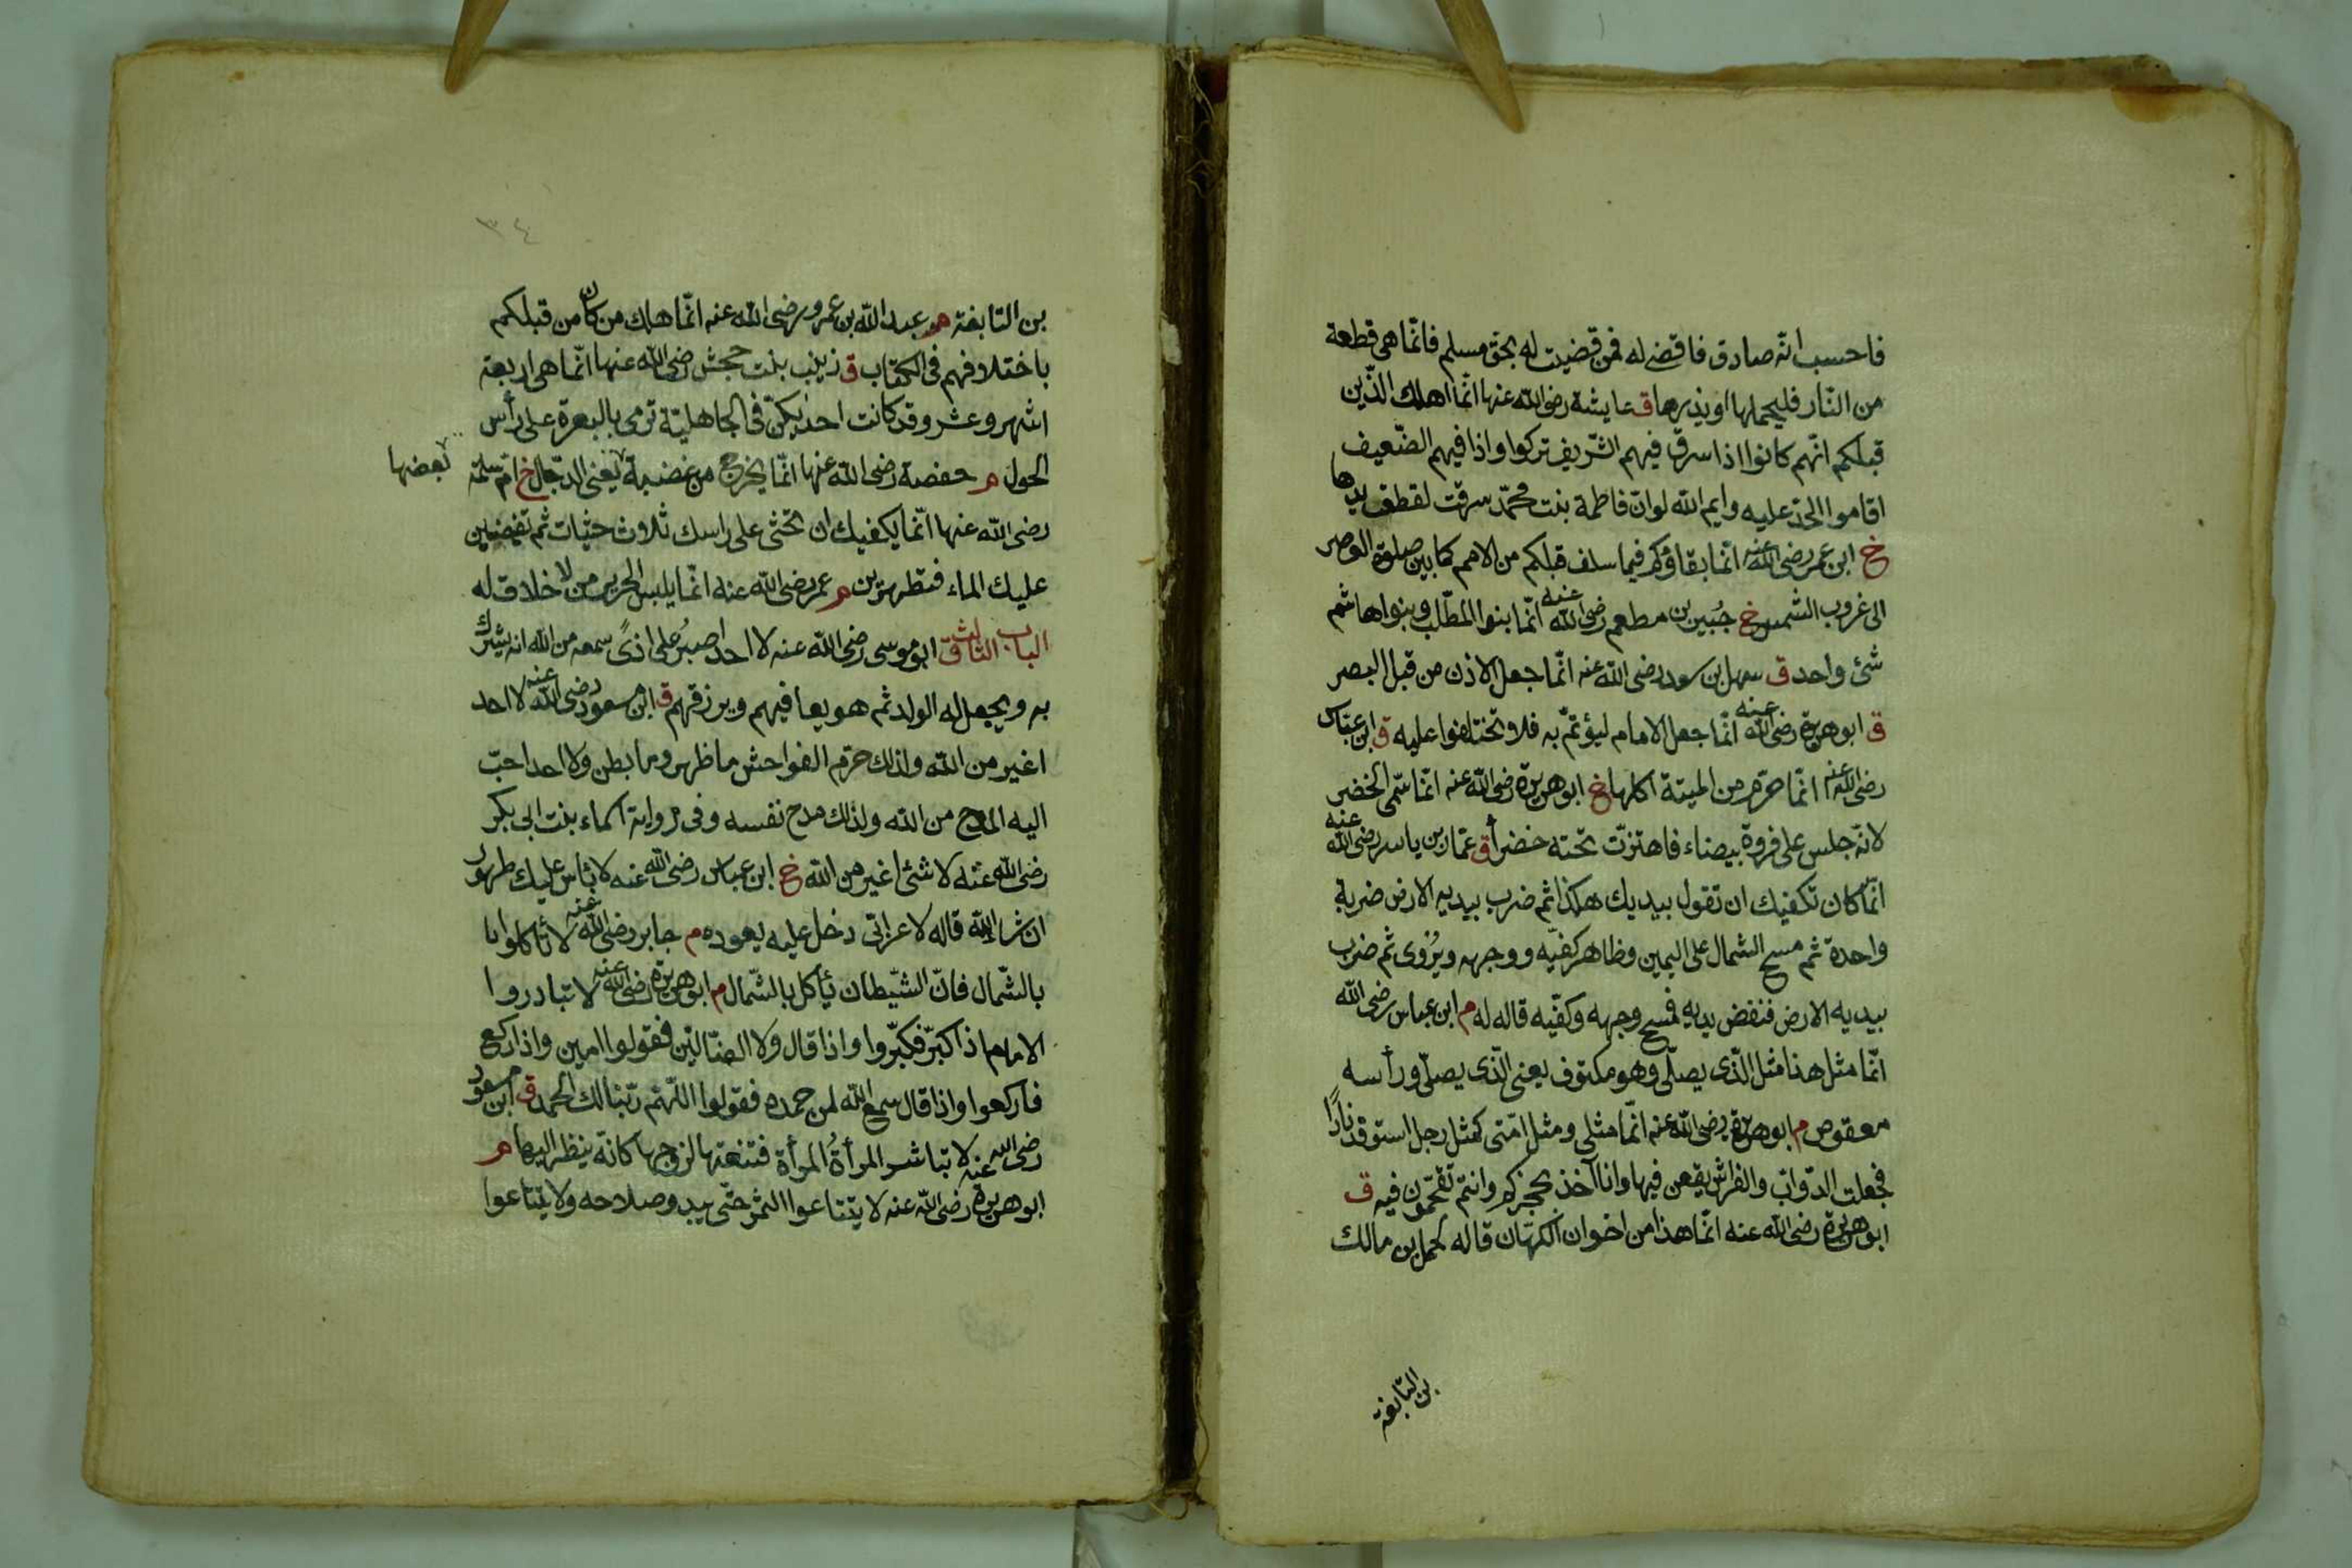 فاحسب انّه صادق فاقضى له فمن قضيت له بحق مسلم فانّما هى قطعة
من النّار فليحملها او يذرها ق عايشة رضى الله عنها انّما اهلك الّذين
قبلكم انّهم كانوا اذا سرق فيهم الشّريف تركوا واذا فيهم الضّعيف
اقاموا الحدّ عليه وايم الله لوانّ فاطمة بنت محمّد سرقت لقطف يدها
خ ابن عمر رضى الله عنه انّما بقاؤكم فيما سلف قبلكم من الامم كما بين صلوة العصر
الى غروب الشمس خ جُبير بن مطعم رضى الله عنه انّما بنوا المطّلب وبنوا هاشم
شئ واحد ق سهل بن سعد رضى الله عنه انّما جعل الاذن من قبل البصر
ق ابو هريرة رضى الله عنه انّما جعل الامام ليؤتمّ به فلا تختلفوا عليه ق ابن عبّاس
رضى الله عنه انّما حرّم من الميتة اكلها خ ابو هريرة رضى الله عنه انّما سمّى الخضر
لانّه جلس على فروة بيضاء فاهتزّت تحته خضرا ق عمّار بن ياسر رضى الله عنه
انّما كان تكفيك ان تقول بيديك هكذا ثم ضرب بيديه الارض ضربة
واحدة ثم مسح الشمال على اليمين وظاهر كفّيه ووجهه ويُروى ثم ضرب
بيديه الارض فنفض يديه فمسح وجهه وكفّيه قاله له م ابن عباس رضى الله
انّما مثل هذا مثل الّذى يصلّى وهو مكتوف يعنى الّذى يصلّى ورأسه
معقوص م ابو هريرة رضى الله عنه انّما مثلى ومثل امّتى كمثل رجل استوقد نارًا
فجعلت الدّوابّ والفراش يقعن فيها وانا آخذ بحجزكم وانتم تقحّمون فيه ق
ابو هريرة رضى الله عنه انّما هذا من اخوان الكهّان قاله لحمل بن مالك
بن التابغة
٣٤
بن التابغة م عبد الله بن عمرو رضى الله عنه انّما هلك من كان من قبلكم
باختلافهم فى الكتاب ق زينب بنت جحش رضى الله عنها انّما هى اربعة
اشهر وعشر وقد كانت احديكنّ فى الجاهليّة ترمى بالبعرة على رأس
الحول م حفصة رضى الله عنها انّما يخرج من غضبة يعنى الدّجّال خ امّ سلمة
يغضبها
رضى الله عنها انّما يكفيك ان تحثى على راسك ثلاث حثيات ثم تفيضين
عليك الماء فتطهرين م عمر رضى الله عنه انّما يلبس الحرير من لا خلاق له
الباب الثالث ق ابو موسى رضى الله عنه لا احد اصبرُ على اذًى سمعه من الله انه يشرك
به ويجعل له الولد ثم هو يعافيهم ويرزقهم ق ابن مسعود رضى الله عنه لا احد
اغير من الله ولذلك حرّم الفواحش ما ظهر وما بطن ولا احد احبّ
اليه المدح من الله ولذلك مدح نفسه وفى رواية اسماء بنت ابى بكر
رضى الله عنه لا شئ اغير من الله خ ابن عباس رضى الله عنه لا بأس عليك طهور
ان شاء الله قاله لاعرابّى دخل عليه يعوده م جابر رضى الله عنه لا تأكلوا با
بالشّمال فانّ الشّيطان يأكل بالشّمال م ابو هريرة رضى الله عنه لا تبادروا
الامام اذا كبّر فكبّروا واذا قال ولا الضّالّين فقولوا امين واذا ركع
فاركعوا واذا قال سمع الله لمن حمده فقولوا اللّهمّ ربّنا لك الحمد ق ابن مسعود
رضى الله عنه لا تباشر المرأةُ المرأة فتنعتها لزوجها كانّه ينظر اليها م
ابو هريرة رضى الله عنه لا تبتاعوا الثمر حتّى يبدو صلاحه ولا تبتاعوا